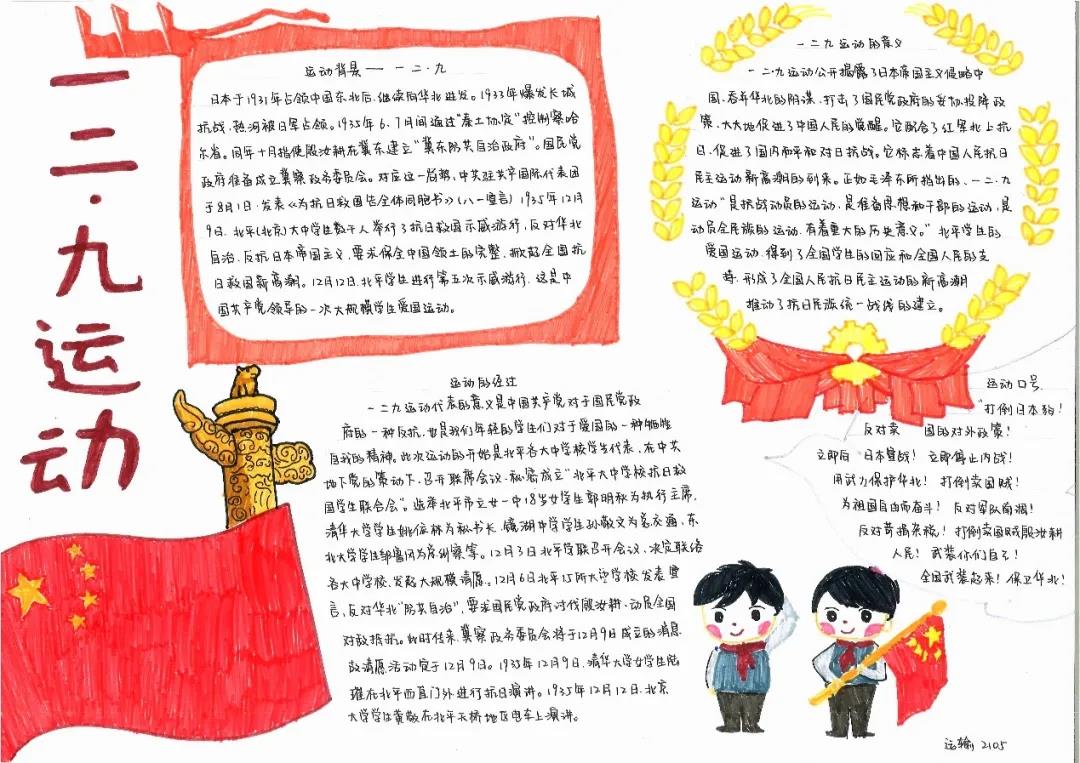 一二·九运动
运动背景——一二·九
日本于1931年占领中国东北后,继续向华北进发。1933年爆发长城
抗战,热河被日军占领。1935年6、7月间通过"秦土协定"控制察哈
尔省。同年十月指使殷汝耕在冀东建立"冀东防共自治政府"。国民党
政府准备成立冀察政务委员会。对应这一局势,中共驻共产国际代表团
于8月1日,发表《为抗日救国告全体同胞书》(八一宣言)1935年12月
9日,北平(北京)大中学生数千人举行了抗日救国示威游行,反对华北
自治,反抗日本帝国主义,要求保全中国领土的完整,掀起全国抗
日救国新高潮。12月12日,北平学生进行第五次示威游行,这是中
国共产党领导的一次大规模学生爱国运动。
一二九运动的意义
一二·九运动公开揭露了日本帝国主义侵略中
国,吞并华北的阴谋,打击了国民党政府的妥协投降政
策,大大地促进了中国人民的觉醒。它配合了红军北上抗
日,促进了国内和平和对日抗战。它标志着中国人民抗日
民主运动新高潮的到来。正如毛泽东所指出的,一二·九
运动"是抗战动员的运动,是准备思想和干部的运动,是
动员全民族的运动,有着重大的历史意义。"北平学生的
爱国运动,得到了全国学生的回应和全国人民的支
持,形成了全国人民抗日民主运动的新高潮
推动了抗日民族统一战线的建立。
运动的经过
一二九运动代表的意义是中国共产党对于国民党政
府的一种反抗,也是我们年轻的学生们对于爱国的一种牺牲
自我的精神。此次运动的开始是北平各大中学校学生代表,在中共
地下党的策动下,召开联席会议,秘密成立"北平大中学校抗日救
国学生联合会"。选举北平市立女一中18岁女学生郭明秋为执行主席,
清华大学学生姚依林为秘书长,镜湖中学学生孙敬文为总交通,东
北大学学生邹鲁风为总纠察等。12月3日北平学联召开会议,决定联络
各大中学校,发起大规模请愿。12月6日北平15所大中学校发表宣
言,反对华北"防共自治",要求国民党政府讨伐殷汝耕,动员全国
对敌抵抗。此时传来,冀察政务委员会将于12月9日成立的消息
故请愿活动定于12月9日。1933年12月9日,清华大学女学生陆
璀在北平西直门外进行抗日演讲。1935年12月12日,北京
大学学生黄敬在北平天桥地区电车上演讲。
运动口号
"打倒日本狗!
反对卖 国的对外政策!
立即向 日本宣战! 立即停止内战!
用武力保护华北! 打倒卖国贼!
为祖国自由而奋斗! 反对军队南溯!
反对苛捐杂税! 打倒卖国贼殷汝耕
人民! 武装你们自己!
全国武装起来! 保卫华北!
运输 2105